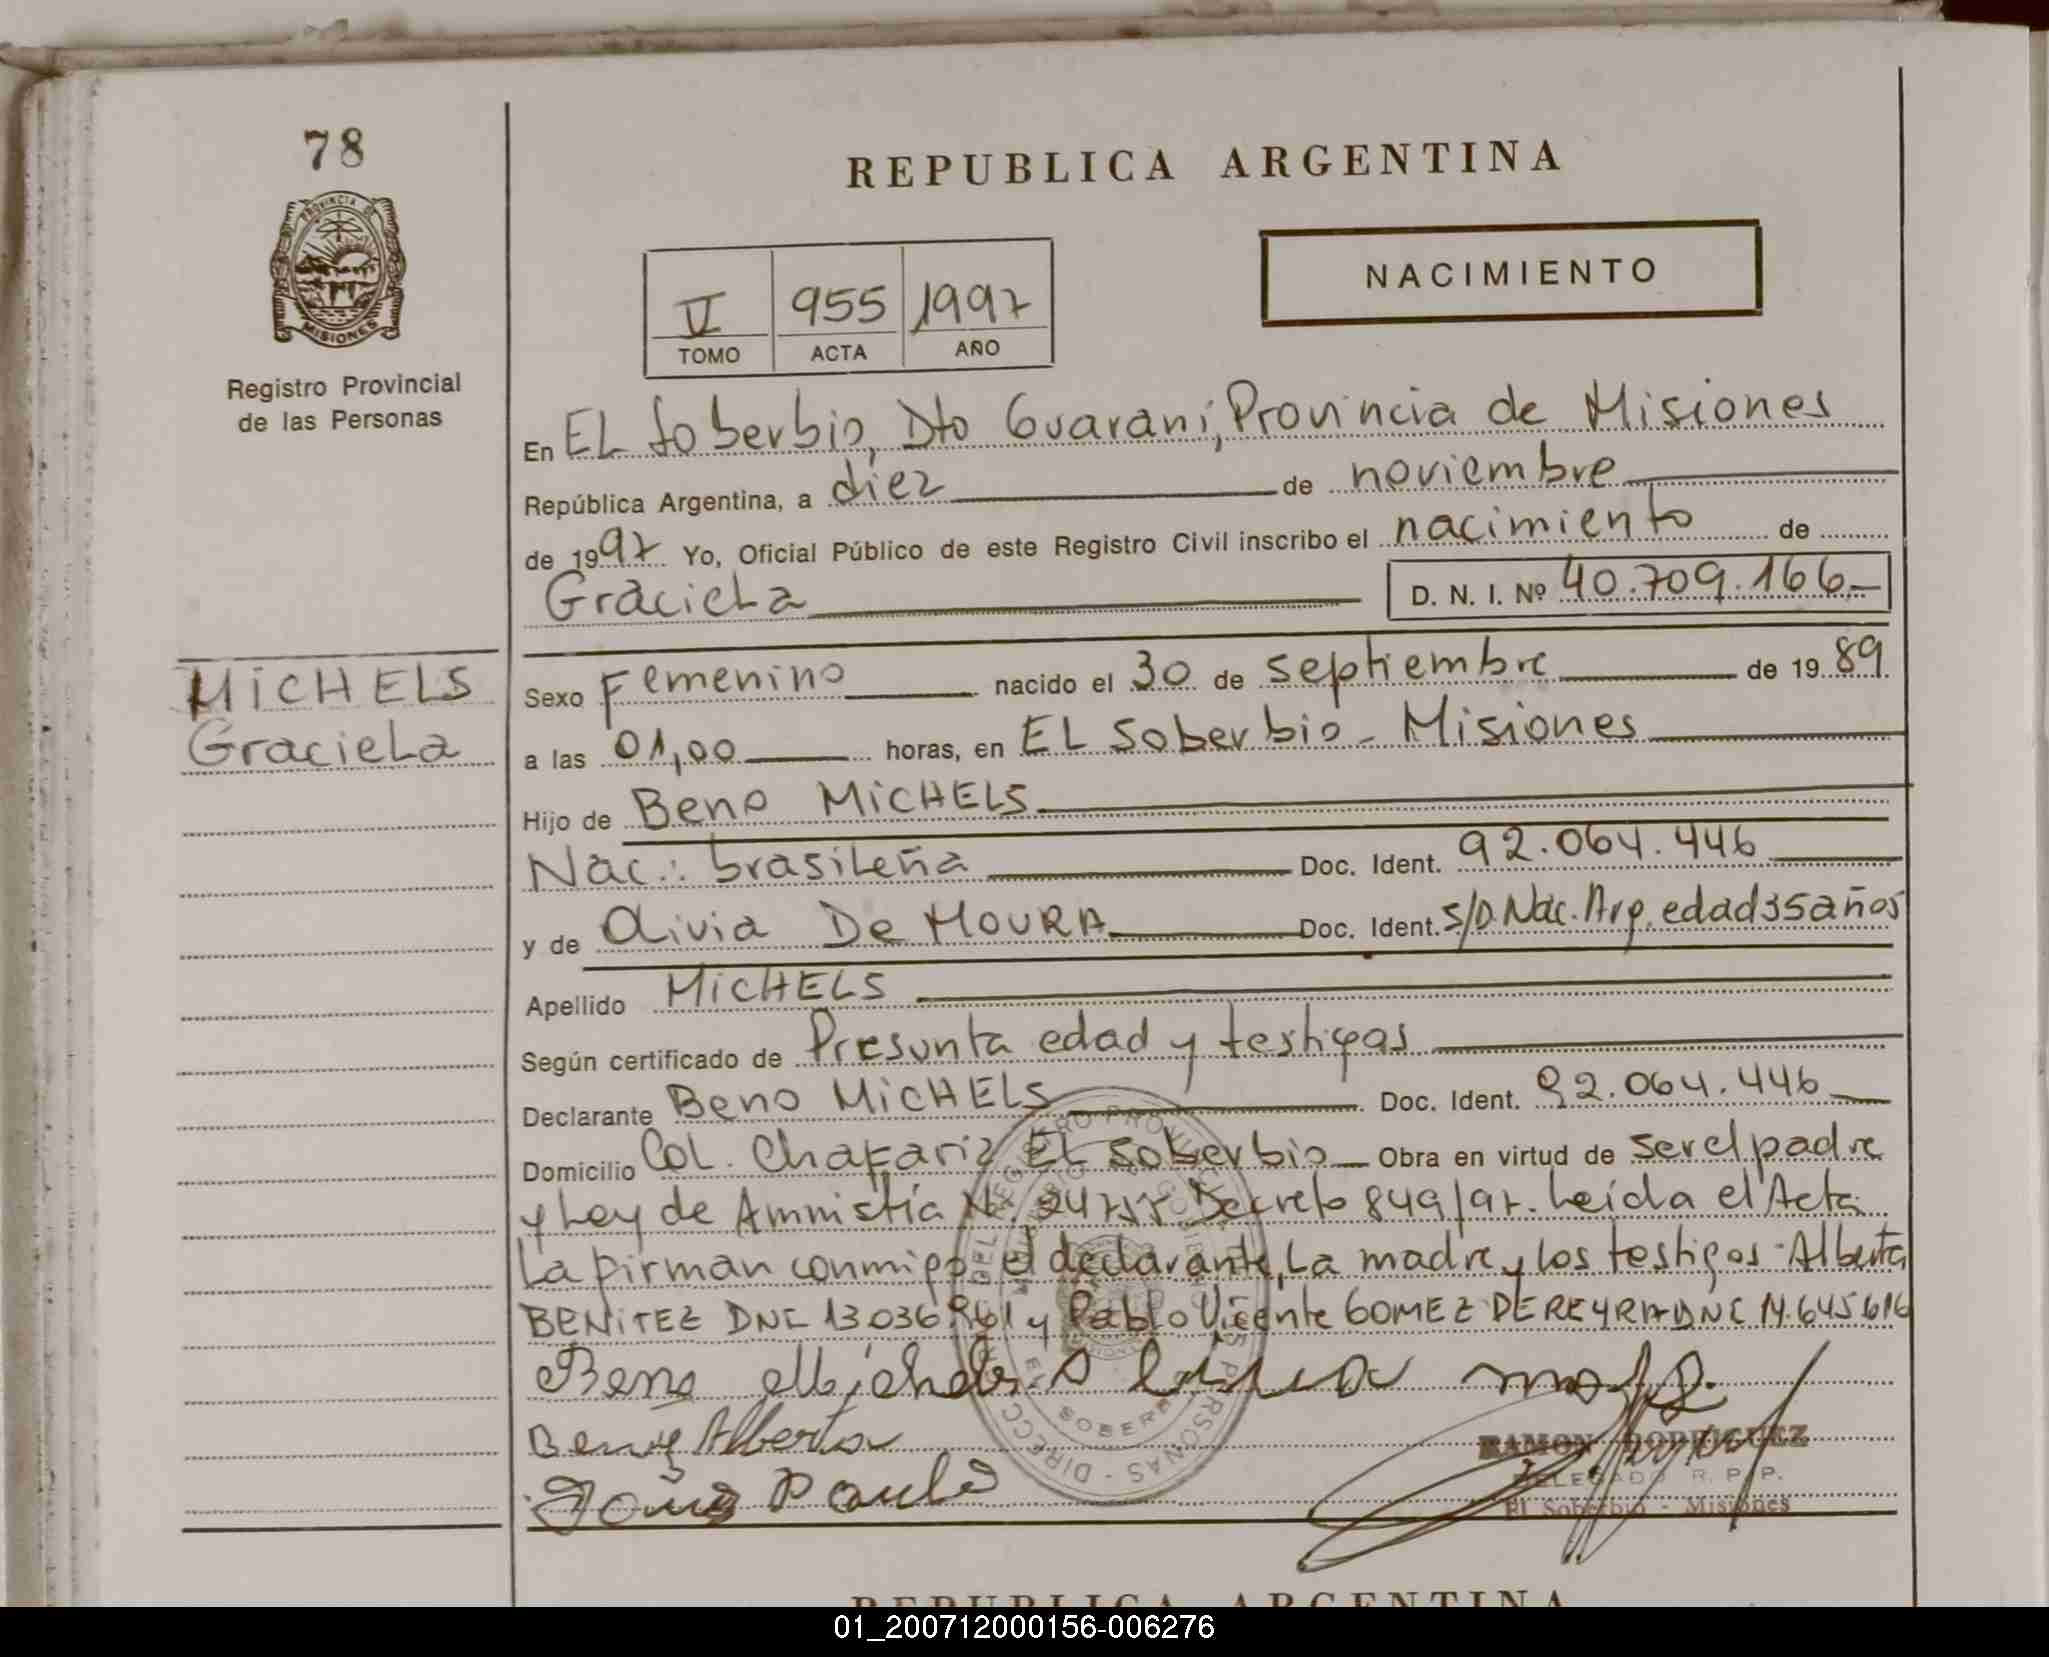 78
PROVINCIA DE
MISIONES
Registro Provincial
de las Personas
REPUBLICA ARGENTINA
NACIMIENTO
V 955 1997
TOMO ACTA AÑO
En EL Soberbio, Dto Guaraní, Provincia de Misiones
República Argentina, a diez de noviembre
de 1997 Yo, Oficial Público de este Registro Civil inscribo el nacimiento de
Graciela D. N. I. Nº 40.709.166.-
MICHELS
Graciela
Sexo Femenino nacido el 30 de septiembre de 1989
a las 01,00 horas, en EL Soberbio - Misiones
Hijo de Beno MICHELS
Nac.: brasileña Doc. Ident. 92.064.446
y de Olivia De MOURA Doc. Ident. S/D. Nac. Arg. edad 35 años
Apellido MICHELS
Según certificado de Presunta edad y testigos
Declarante Beno MICHELS Doc. Ident. 92.064.446
Domicilio Col. Chafariz EL Soberbio Obra en virtud de ser el padre
y Ley de Amnistía N. Decreto 849/97. Leída el Acta
La firman conmigo el declarante, La madre y los testigos Alberta
BENITEZ DNI 13.036. y Pablo Vicente GOMEZ DE REYRA DNI 14.645.616
Beno Michels
Alberta
RAMON RODRIGUEZ
DELEGADO R. P. P.
El Soberbio - Misiones
REPUBLICA ARGENTINA
01_200712000156-006276